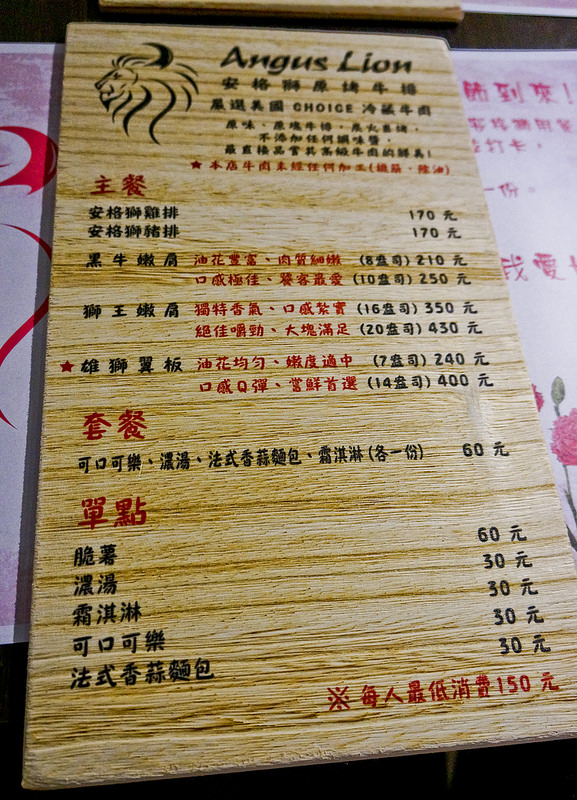 Angus Lion
安格獅原烤牛排
嚴選美國 CHOICE 冷藏牛肉
原味、原塊牛排，炭火直烤，
不添加任何調味醬，
最直接品嘗其高級牛肉的鮮美!
★本店牛肉未經任何加工(鐵筋、除油)
主餐
安格獅雞排 170 元
安格獅豬排 170 元
黑牛嫩肩 油花豐富、肉質細嫩 (8盎司) 210 元
口感極佳、饕客最愛 (10盎司) 250 元
獅王嫩肩 獨特香氣、口感紮實 (16盎司) 350 元
絕佳嚼勁、大塊滿足 (20盎司) 430 元
★雄獅翼板 油花均勻、嫩度適中 (7盎司) 240 元
口感Q彈、嘗鮮首選 (14盎司) 400 元
套餐
可口可樂、濃湯、法式香蒜麵包、霜淇淋(各一份) 60 元
單點
脆薯 60 元
濃湯 30 元
霜淇淋 30 元
可口可樂 30 元
法式香蒜麵包 30 元
※每人最低消費150 元
節到來!
打卡，
一份。
我愛